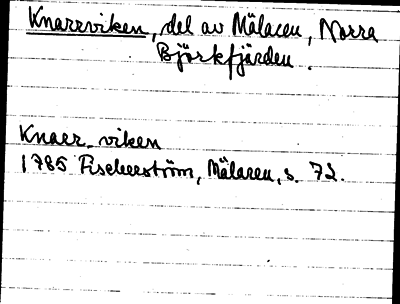 Knarrviken, del av Mälaren, Norra
Björkfjärden.
Knarr-viken
1785 Fischerström, Mälaren, s. 72.